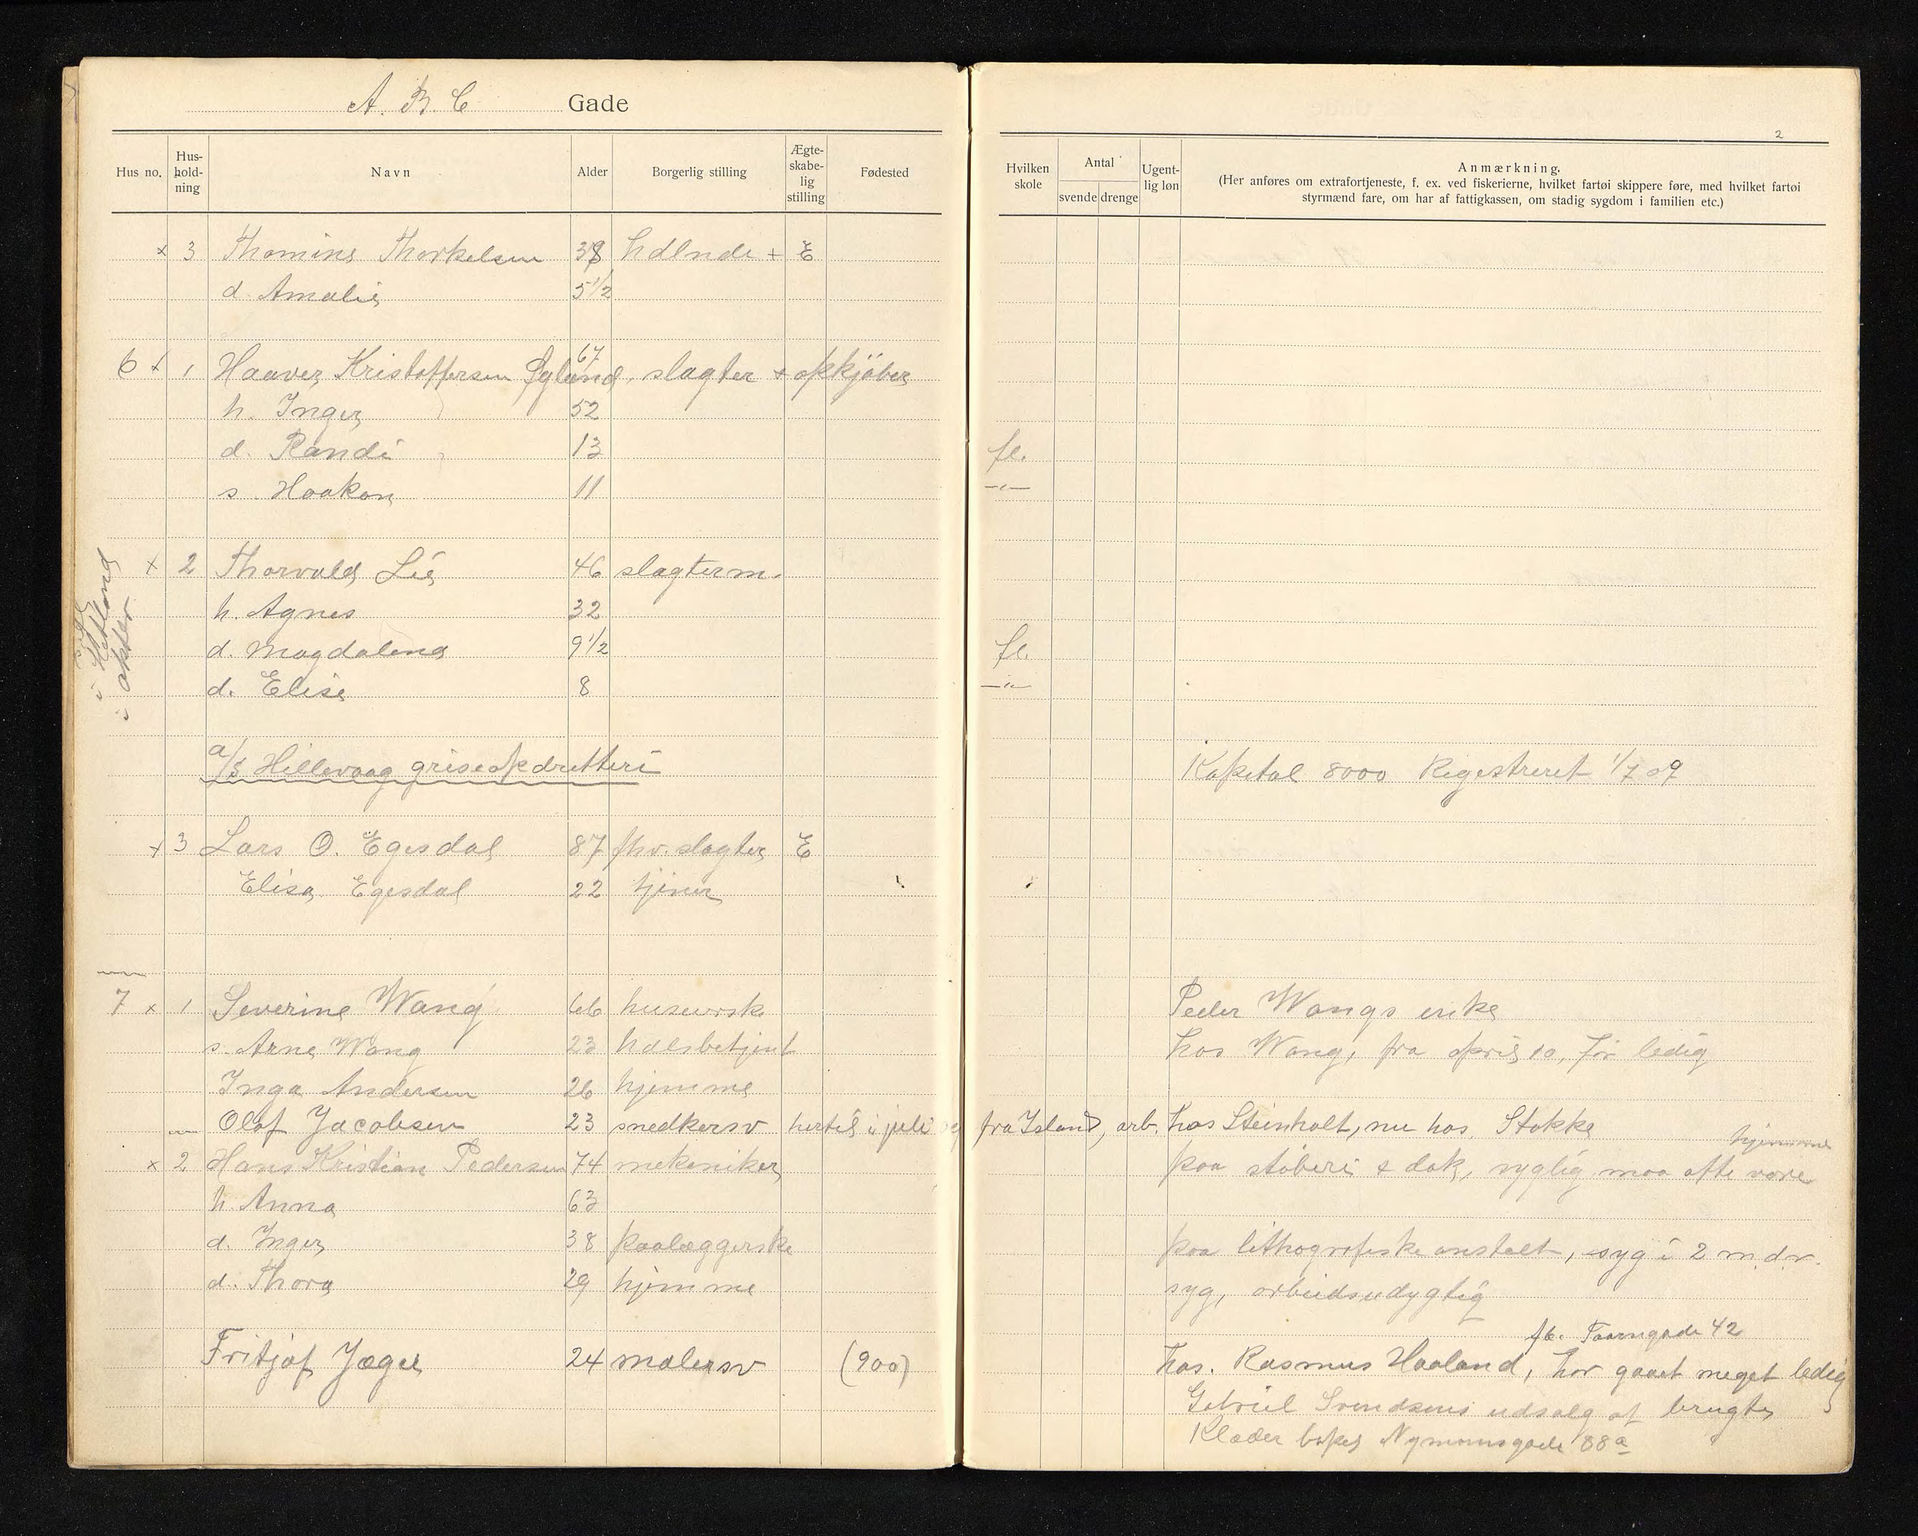 A. B. C Gade
Hus no. Hus-hold-ning Navn Alder Borgerlig stilling Ægte-skabe-lig stilling Fødested
× 3 Thomine Thorkelsen 38 hdlnde + E
d. Amalie 5 1/2
67
6 × 1 Haaver Kristoffersen Øglænd, slagter + opkjøber
h. Inger 52
d. Randi 13
s. Haakon 11
× 2 Thorvald Lie 46 slagterm.
h. Agnes 32
d. Magdalena 9 1/2
d. Elise 8
i Hetland
i aktier
a/s Hillevaag griseopdretteri
× 3 Lars O. Egesdal 87 fhv. slagter E
Elisa Egesdal 22 tjener
7 × 1 Severine Wang 66 huseierske
s. Arne Wang 23 hdlsbetjent
Inga Andersen 26 hjemme
Olaf Jacobsen 23 snedkersv hertil i juli
× 2 Hans Kristian Pedersen 74 mekaniker
h. Anna 63
d. Inger 38 paalæggerske
d. Thora 29 hjemme
Fritjof Jæger 24 malersv (900)
2
Hvilken skole Antal svende drenge Ugent-lig løn Anmærkning.
(Her anføres om extrafortjeneste, f. ex. ved fiskerierne, hvilket fartøi skippere føre, med hvilket fartøi
styrmænd fare, om har af fattigkassen, om stadig sygdom i familien etc.)
fl.
—"—
fl.
—"—
Kapital 8000 Registreret 1/7 09
Peder Wangs enke
hos Wang, fra april 10, før ledig
fra Island, arb. hos Steinholt, nu hos Stokke
hjemme
paa støberi & dok, syglig maa ofte være
paa lithografiske anstalt, syg i 2 mdr.
syg, arbeidsudygtig
fl. Taarngade 42
hos. Rasmus Haaland, har gaaet meget ledig
Gabriel Svendsens udsalg af brugte
Klæder Nymansgade 88a